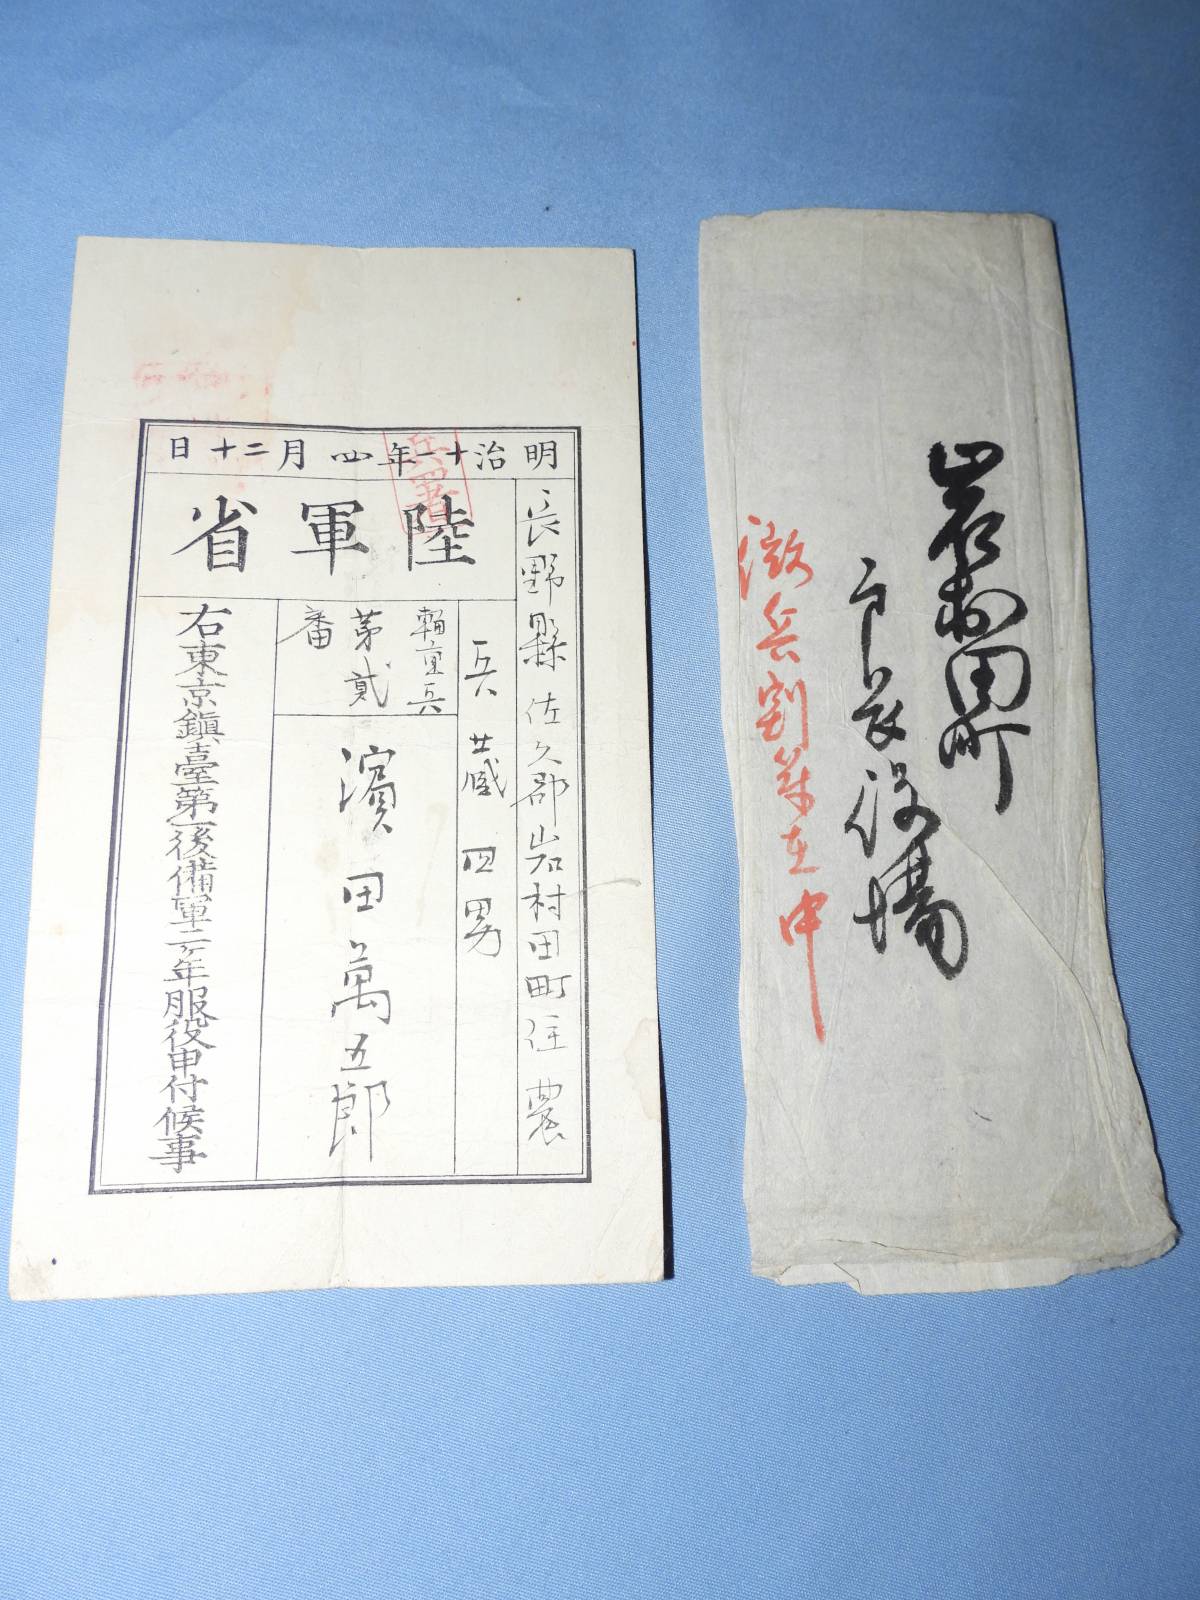 明治十一年四月二十日
陸軍省
長野縣佐久郡岩村田町住農
兵蔵四男
輜重兵
第貳
番
濱田萬五郎
右東京鎮臺第一後備軍二ヶ年服役申付候事
兵署
岩村田町
戸長役場
徴兵割符在中